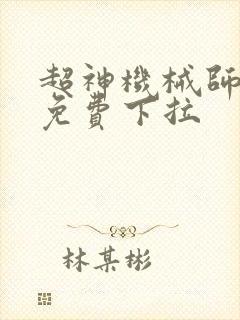 超神機械師
免費下拉
林某彬